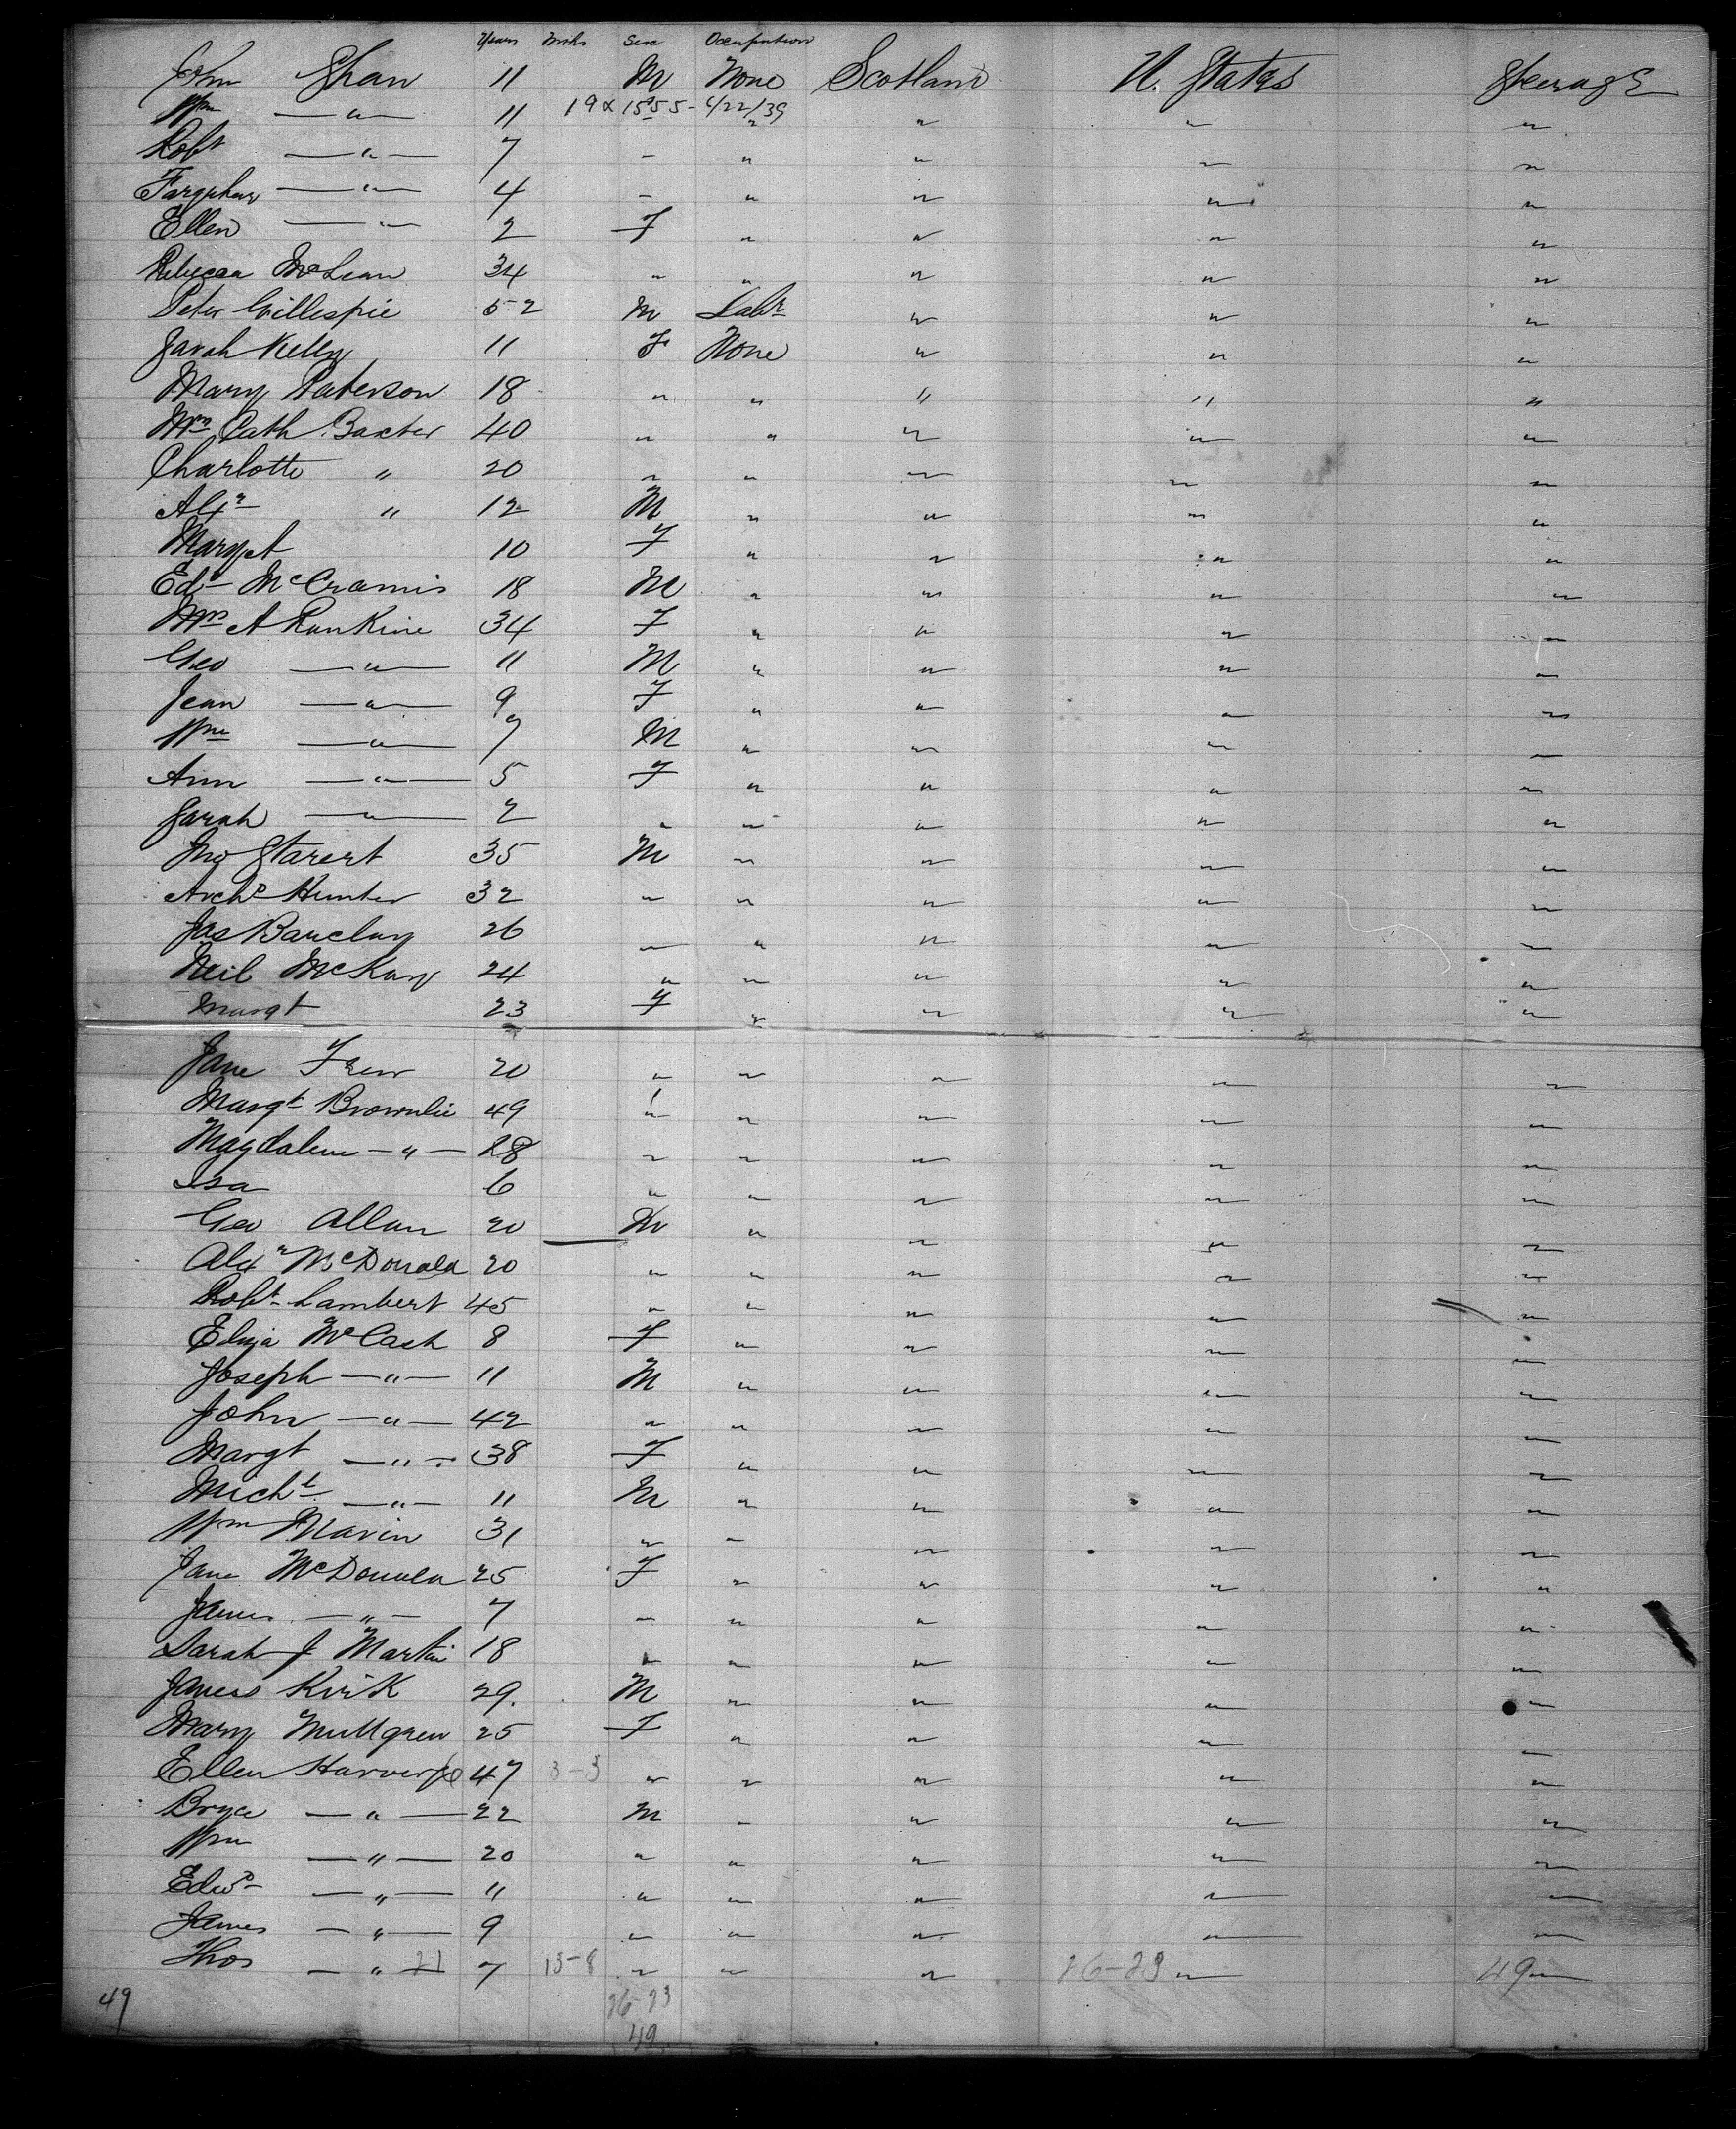 Years Mths Sex Occupation
John Shaw 11 M None Scotland U. States Steerage
Wm — " — 11 19 x 1555 - 4/22/39 " " " "
Robt — " — 7 " " " " "
Farquhar — " — 4 " " " " "
Ellen — " — 2 F " " " "
Rebecca McLean 34 " " " " "
Peter Gillespie 52 M Labr " " "
Sarah Kelly 11 F None " " "
Mary Paterson 18 " " " " "
Mrs Cath Baxter 40 " " " " "
Charlotte " 20 " " " " "
Alexr " 12 M " " " "
Margt 10 F " " " "
Edd McCramis 18 M " " " "
Mrs A Rankine 34 F " " " "
Geo — " — 11 M " " " "
Jean — " — 9 F " " " "
Wm — " — 7 M " " " "
Ann — " — 5 F " " " "
Sarah — " — 2 " " " " "
Jno 35 M " " " "
Archd Hunter 32 " " " " "
Jas Barclay 26 " " " " "
Neil McKay 24 " " " " "
Margt 23 F " " " "
Jane Frew 20 " " " " "
Margt Brownlie 49 " " " " "
Magdalene — " — 28 " " " " "
Isa 6 " " " " "
Geo Allan 20 M " " " "
Alexr McDonald 20 " " " " "
Robt Lambert 45 " " " " "
Eliza McCash 8 F " " " "
Joseph — " — 11 M " " " "
John — " — 42 " " " " "
Margt — " — 38 F " " " "
Michl — " — 11 M " " " "
Wm Mavin 31 " " " " "
Jane McDonald 25 F " " " "
James — " — 7 " " " " "
Sarah J Martin 18 " " " " "
James Kirk 29. M " " " "
Mary Mullgrew 25 F " " " "
Ellen 47 3-3 " " " " "
Bryce — " — 22 M " " " "
Wm — " — 20 " " " " "
Edwd — " — 11 " " " " "
James — " — 9 " " " " "
Thos — " — 21 7 15-8 " " " 26-23 " 49 "
49 26-23
49